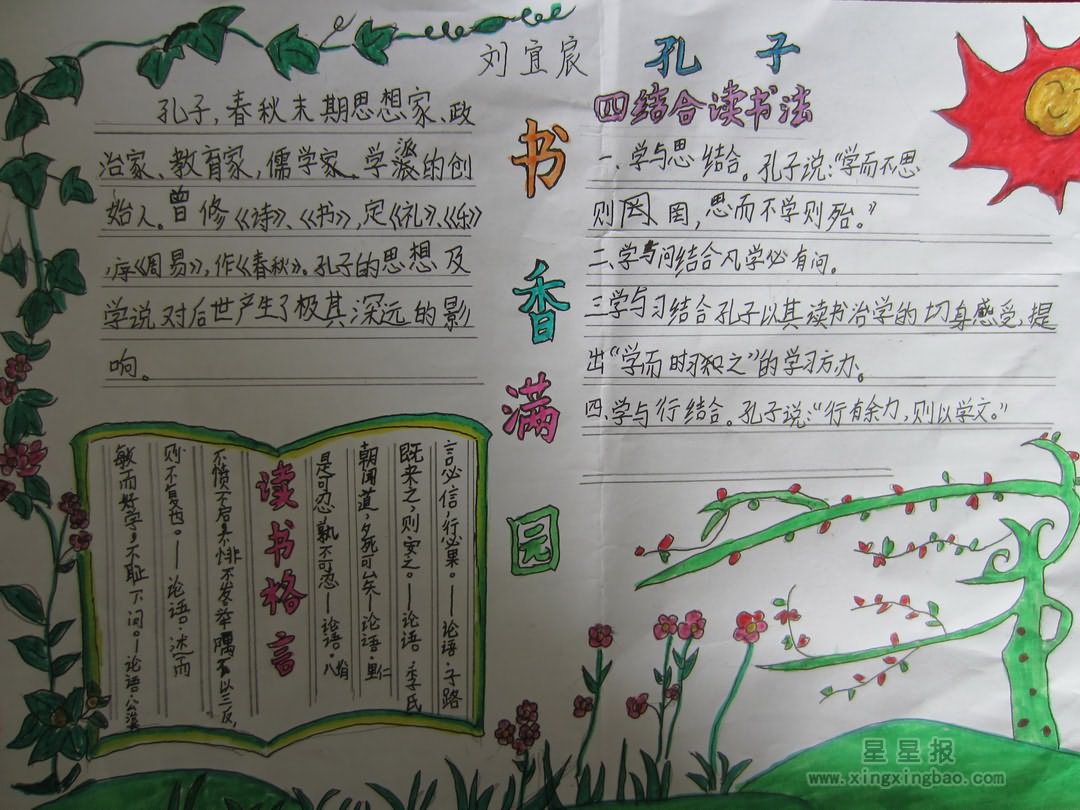 刘宜宸
孔子，春秋末期思想家、政
治家、教育家，儒学家、学派的创
始人。曾修《诗》、《书》，定《礼》、《乐》
，序《周易》，作《春秋》。孔子的思想及
学说对后世产生了极其深远的影
响。
书香满园
孔子
四结合读书法
一、学与思结合。孔子说：“学而不思
则罔，思而不学则殆。”
二、学与问结合凡学必有问。
三学与习结合孔子以其读书治学的切身感受，提
出“学而时习之”的学习方办。
四、学与行结合。孔子说：“行有余力，则以学文。”
言必信，行必果。——论语·子路
既来之，则安之。——论语·季氏
朝闻道，夕死可矣——论语·里仁
是可忍孰不可忍——论语·八佾
读书格言
不愤不启不悱不发举隅不以三反，
则不复也。——论语·述而
敏而好学，不耻下问。——论语·公冶
星星报
www.xingxingbao.com